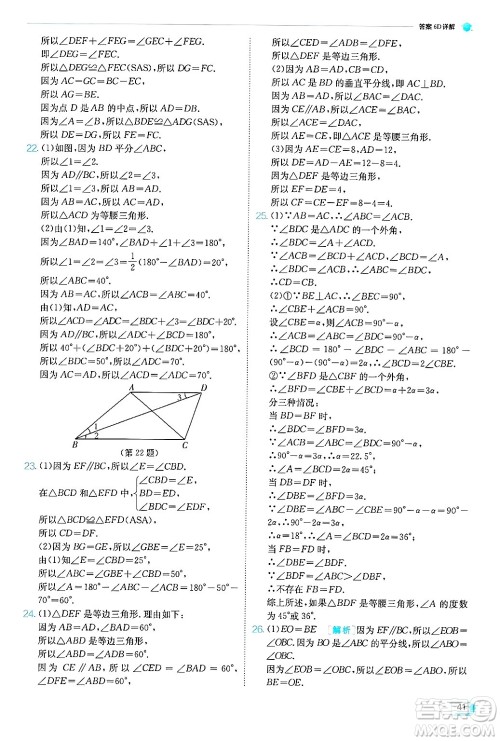 答案 6D 详解
所以∠DEF+∠FEG=∠FEG+∠GEC.
即∠DEG=∠FEC.
所以△DEG≌△FEC(SAS),
所以AG=BE.
因为点D是AB的中点,所以AD=BD.
因为∠A=∠B,所以△BDE≌△ADG(SAS),
所以DE=DG=FE=FC.
22. (1)如图,因为BD平分∠ABC,
所以∠1=∠2.
因为AD//BC,所以∠2=∠3.
所以∠1=∠3.所以AB=AD.
因为AB=AC,所以AC=AD.
所以△ACD为等腰三角形.
(2)由(1)知,∠1=∠2=∠3,
因为∠BAD=140°,∠BAD+∠1+∠3=180°,
所以∠1=∠2=∠3=1/2(180°-∠BAD)=20°.
因为AB=AC,所以∠ABC=∠ACB.
由(1)知,AD=AC,
所以∠ADC=∠ACD.
因为AD//BC,所以∠BCD+∠ADC=180°.
所以40°+(40°+∠BDC+20°)=180°.
所以∠ACD=∠ADC=70°.
A
D
3
1
2
B
C
(第22题)
23. (1)因为EF//BC,所以∠E=∠CBD.
在△BCD和△EFD中,{∠CBD=∠E,
BD=ED,
∠BDC=∠EDF,
所以△BCD≌△EFD(ASA).
所以CD=DF.
(2)因为BG=GE,所以∠GBE=∠E=∠CBD.
因为AB=AC,所以∠C=∠ABC=
所以∠A=180°-∠ABC-∠C=180°-
24. (1)△DEF是等边三角形.理由如下:
因为△ABD是等边三角形,
所以∠ABD=∠ADB=60°.
因为CE//AB,所以∠CED=∠A=60°,
所以∠CED=∠ADB=∠DFE=60°.
所以△DEF是等边三角形.
(2)因为AB=AD,CB=CD,
所以AC是BD的垂直平分线,即AC⊥BD.
因为AB=AD,所以∠BAC=∠DAC.
因为CE//AB,所以∠BAC=∠ACE.
所以∠ACE=∠DAC=∠CAD.
所以△ACE是等腰三角形.
(3)因为△ACE是等腰三角形,
所以AE=CE=8.
所以DE=AD-AE=12-8=4.
因为△DEF是等边三角形,
所以EF=DE=4.
所以CF=CE-EF=8-4=4.
25. (1)∵AB=AC,∴∠ABC=∠ACB.
∵∠BDC是△ADC的一个外角,
∴∠BDC=∠A+∠ACD.
∵∠BCD=∠A,∠BDC=∠ACB,
∴∠BDC=∠ABC.
∴CD=CB.
(2)①∵BE⊥AC,∴∠BEC=90°.
∴∠CBE+∠ACB=90°.
设∠CBE=α,则∠ACB=90°-α,
∴∠ACB=∠ABC=∠BDC=90°-α.
∴∠BCD=180°-∠BDC-∠ABC=180°-
(90°-α)-(90°-α)=2α.∴∠BCD=2∠CBE.
②∵∠BFD是△CBF的一个外角,
∴∠BFD=∠CBE+∠BCD=α+2α=3α.
分三种情况:
当BD=BF时,
∴∠BDC=∠BFD=3α.
∵∠ACB=∠ABC=∠BDC=90°-α,
∴90°-α=3α.∴α=22.5°.
∴∠A=∠BCD=2α=45°.
当DB=DF时,
∴∠DBE=∠BFD=3α.
∵∠DBE=∠ABC-∠CBE=90°-α-α=90°-2α,
∴90°-2α=3α.∴α=18°.
∴∠A=∠BCD=2α=36°.
当FB=FD时,
∴∠DBE=∠BDF.
∵∠BDF=∠ABC>∠DBF,
∴不存在FB=FD.
综上所述,如果△BDF是等腰三角形,∠A的度数
为45°或36°.
26. (1)EO=BE [解析]因为EF//BC,所以∠EOB=
∠OBC.因为BO是∠ABC的平分线,所以∠EBO=
∠OBC,所以∠EOB=∠EBO.所以
EO=BE.
41